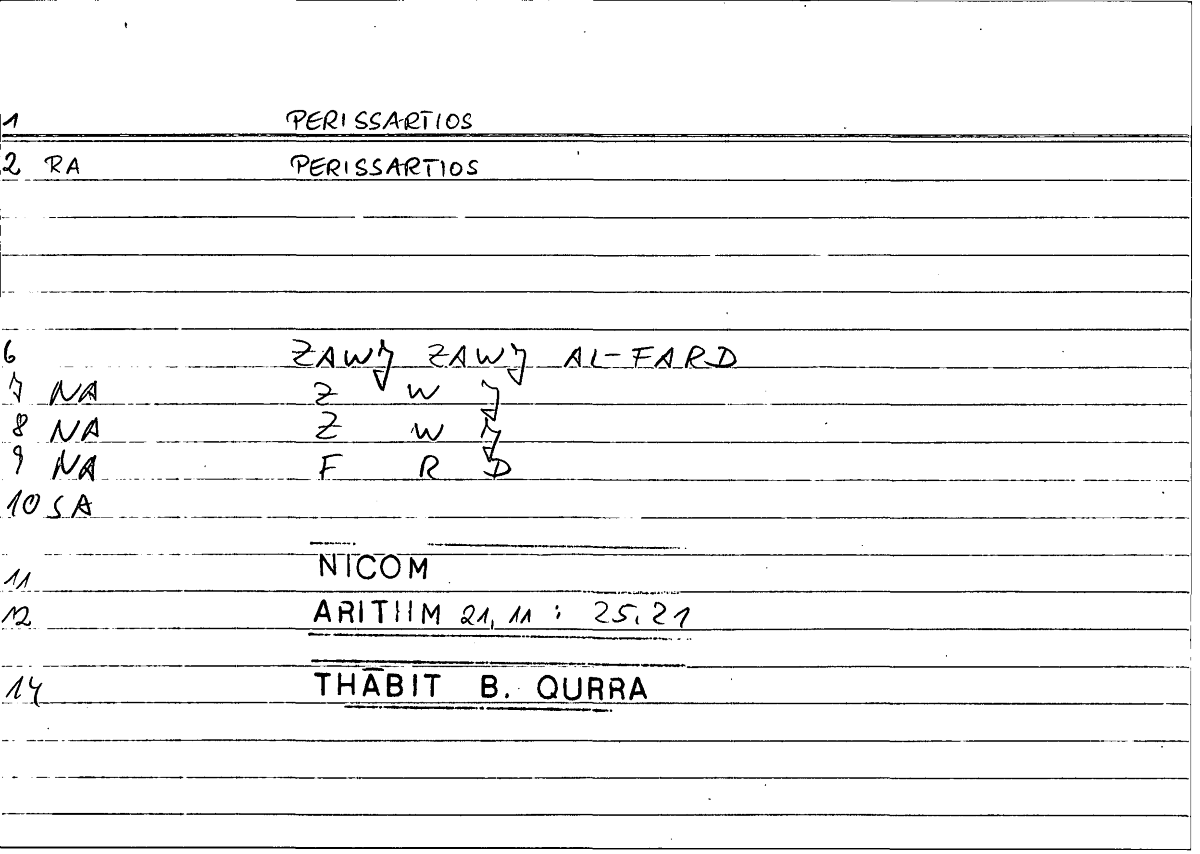 1 PERISSARTIOS
2 RA PERISSARTIOS
6 ZAWǦ ZAWǦ AL-FARD
7 NA Z W Ǧ
8 NA Z W Ǧ
9 NA F R D
10 SA
11 NICOM
12 ARITHM 21, 11 : 25,21
14 THĀBIT B. QURRA